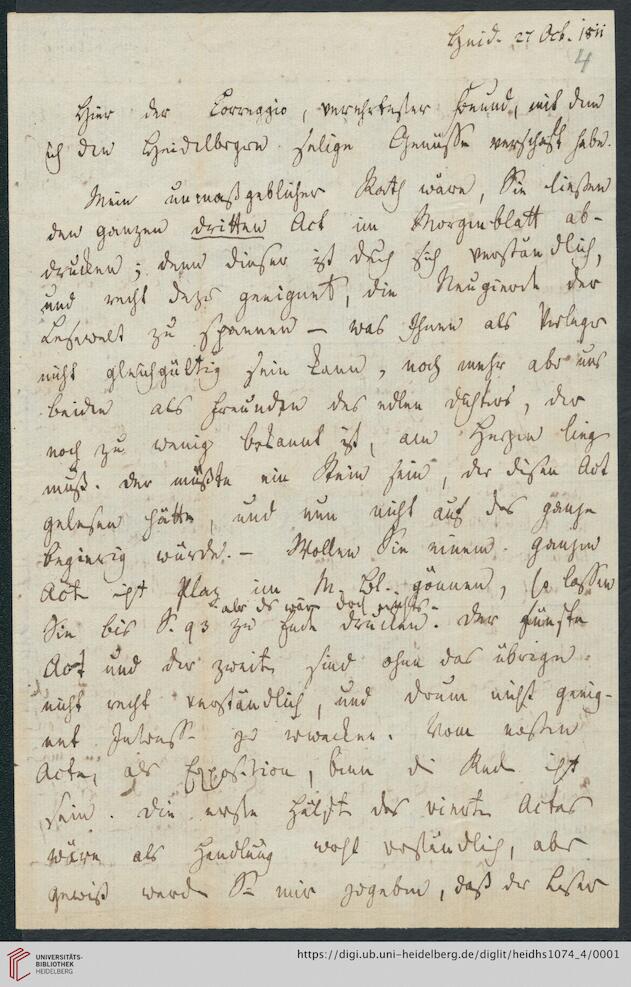 Heid. 27 Oct. 1811
4
Hier der Correggio, verehrtester Freund, mit dem
ich den Heidelbergern selige Genüsse verschafft habe.
Mein unmaßgeblicher Rath wäre, Sie ließen
den ganzen dritten Act im Morgenblatt ab-
drucken; denn dieser ist durch sich verständlich,
und recht dazu geeignet, die Neugierde der
Lesewelt zu spannen – was Ihnen als Verleger
nicht gleichgültig sein kann, noch mehr aber uns
beiden als Freunden des edlen Dichters, der
noch zu wenig bekannt ist, am Herzen liegen
muß. Der müßte ein Stein sein, der diesen Act
gelesen hätte, und nun nicht auf das ganze
begierig würde. – Wollen Sie einem ganzen
Act nicht Plaz im M. Bl. gönnen, so lassen
aber das wäre doch
Sie bis S. 93 zu Ende drucken. Der fünfte
Act und der zweite sind ohne das übrige
nicht recht verständlich, und drum nicht geeig-
net Interesse zu erwecken. Vom ersten
Acte, als Exposition, kann die Rede nicht
sein. Die erste Hälfte des vierten Actes
wäre als Handlung wohl verständlich, aber
gewiß werden Sie mir zugeben, daß der Leser
UNIVERSITÄTS-
BIBLIOTHEK
HEIDELBERG
https://digi.ub.uni-heidelberg.de/diglit/heidhs1074_4/0001